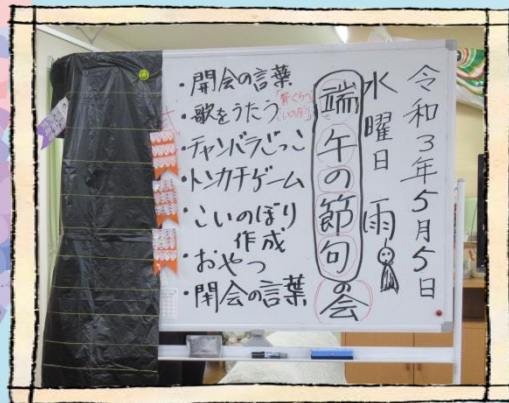 令和3年5月5日
水曜日 雨
端午の節句の会
・開会の言葉
・歌をうたう
・チャンバラごっこ
・トンカチゲーム
・こいのぼり
作成
・おやつ
・閉会の言葉